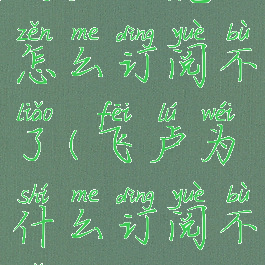 zěn me dìng yuè bù
怎么订阅不
liǎo fēi lú wéi
了(飞卢为
shí me dìng yuè bù
什么订阅不